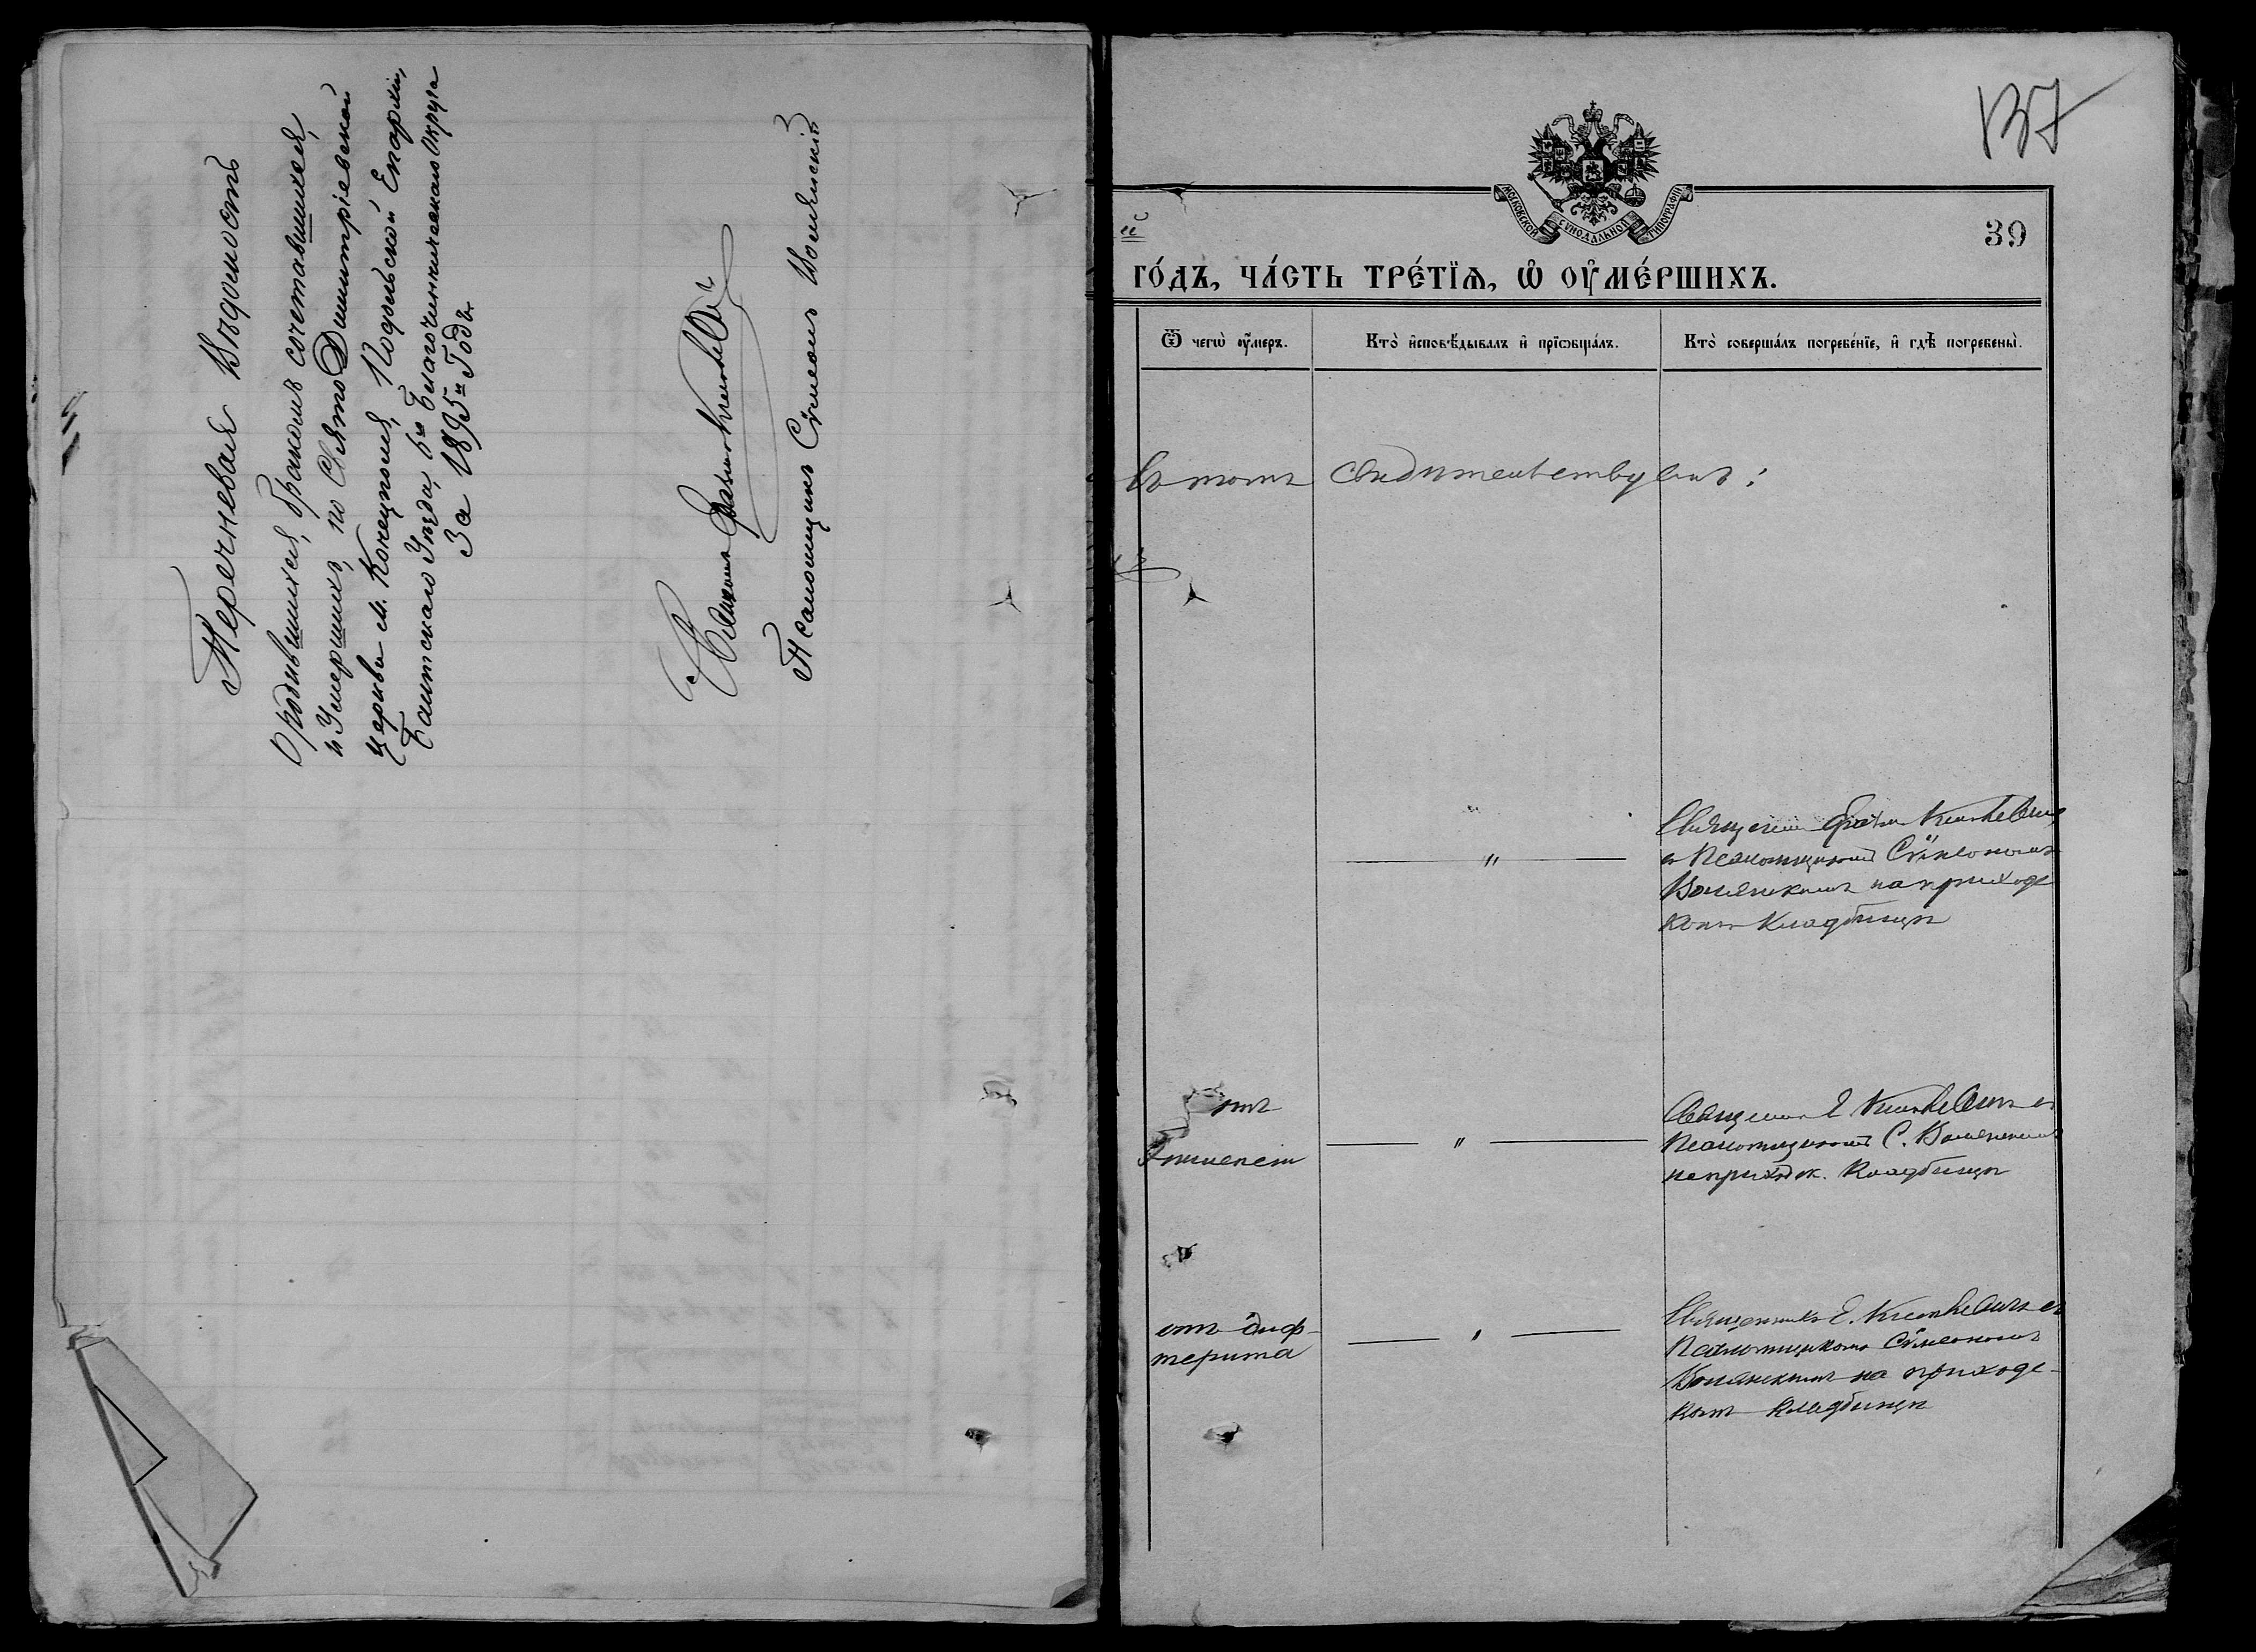 Перечневая Вѣдомость
О родившихся, бракомъ сочетавшихся,
и Умершихъ, по Свято Димитріевской
церкви м. Конецполя, Подольской Епархіи,
Балтскаго Уѣзда, 6го Благочинническаго Округа
За 1895й Годъ.
Священникъ
Псаломщикъ Сѵмеонъ
137
МОСКОВСКОЙ СѴНОДАЛЬНОЙ ТИПОГРАФІИ
й
39
ГО́ДЪ, ЧА́СТЬ ТРЕ́ТЇѦ, Ѡ҆ ОУ҆МЕ́РШИХЪ.
Ѿ чегѡ̀ оу҆́меръ.
Кто̀ и҆сповѣ́дывалъ и҆ прїѡбща́лъ.
Кто̀ соверша́лъ погребе́нїе, и҆ гдѣ̀ погребены̀.
въ томъ свидѣтельствуемъ:
"
съ Псаломщикомъ Сѵмеономъ
на приход
комъ кладбищѣ
отъ
"
Псаломщикомъ С.
на приходск. кладбищѣ
отъ диф-
терита
"
Священникъ Е.
Псаломщикомъ Сѵмеономъ
на приходс-
комъ кладбищѣ